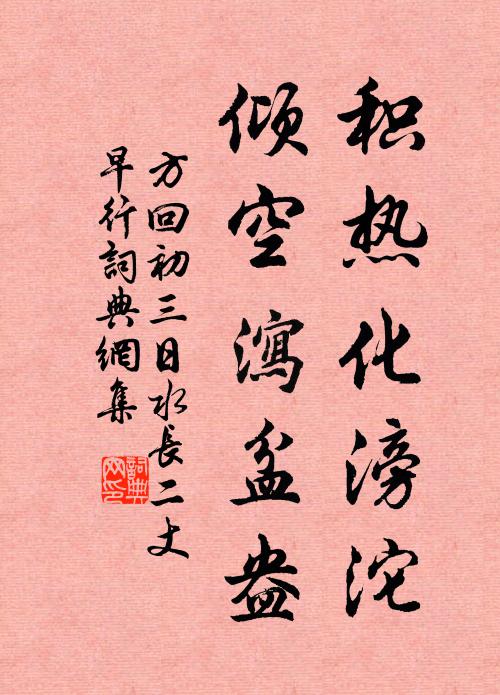 积热化滂沱
倾空瀉盆盎
方回初三日水長二丈
早行詞典網集
詞典
网印